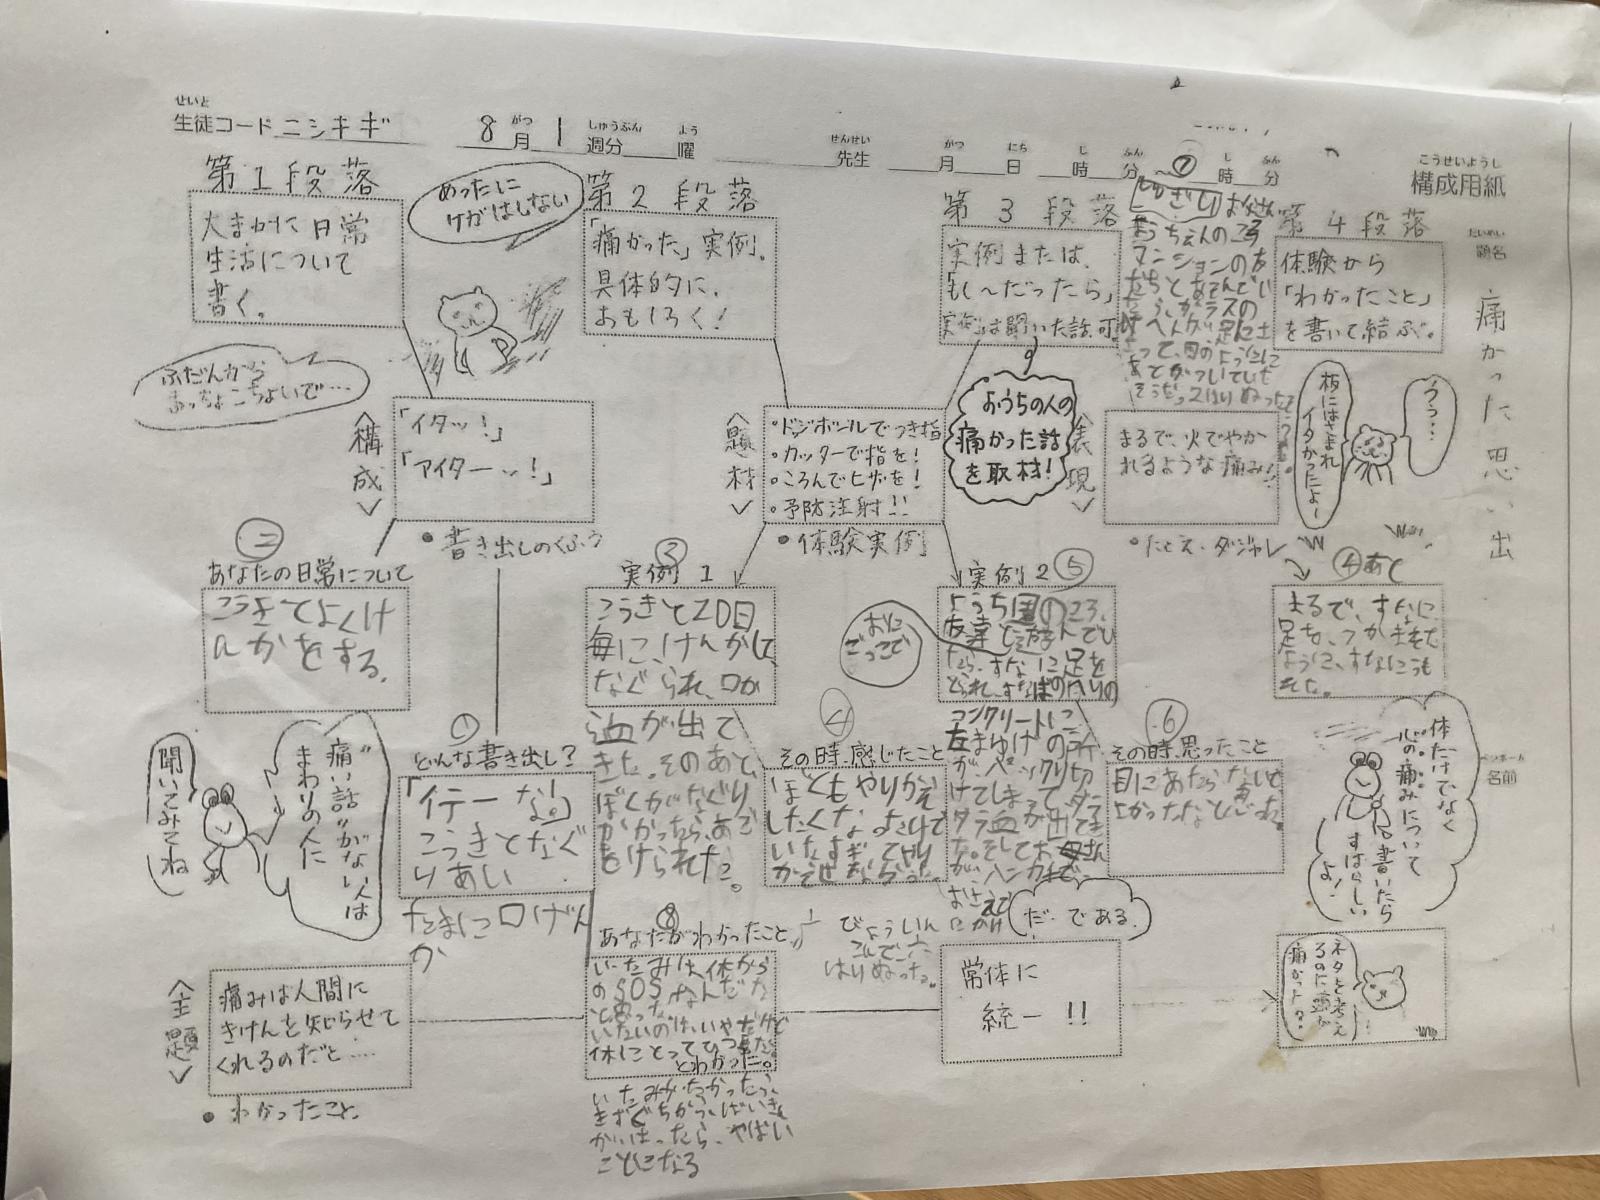 せいと
生徒コード ニシキギ
8月 1 週分 曜
がつ しゅうぶん よう
先生 月 日 時 分 ~ 時 分
せんせい がつ にち じ ふん じ ふん
こうせいようし
構成用紙
だいめい
題名
痛かった思い出
名前
第1段落
大まかに日常
生活について
書く。
めったに
けがはしない
第2段落
「痛かった」実例。
具体的に、
おもしろく!
第3段落
実例または、
「もし~だったら」
実例は聞いた話可
第4段落
体験から
「わかったこと」
を書いて結ぶ。
⑦
ようちえんの ころ
マンションの友
だちと
ガラスの
ふだんから
おっちょこちょいで……
〈構成〉
「イタッ!」
「アイターッ!」
●書き出しのくふう
〈題材〉
・ドッジボールでつき指
・カッターで指を!
・ころんでヒザを!
・予防注射!!
●体験実例
おうちの人の
痛かった話
を取材!
〈表現〉
まるで、火でやか
れるような痛み!!
●たとえ・ダジャレ
板にはさまれ
イタかったよ~
うう…
②
あなたの日常について
こうきてよくけ
んかをする。
実例1
③
こうきと20日
毎に、けんかして、
なぐられ、口か
ら血が出て
きた。そのあと、
ぼくがなぐり
かかったら、あで
をけられた。
おに
ごっこで
実例2 ⑤
ようち園のころ、
友達と遊んでい
たら、すなに足を
とられ、すなばのへりの
コンクリートに
左まゆげの所
が、ペックリ切
けてしまって、ダラ
ダラ血が出てき
た。そしてお母さん
が、ハンカチで、
おさえて
びょういん
はりぬった。
④あし
まるで、すなに
足を、つかまえた
ように、すなにうも
れた。
①
どんな書き出し?
「イテーな!」
こうきとなぐ
りあい
たまに口げん
か
④
その時、感じたこと
ぼくもやりかえ
したくなったけど
いたすぎてやり
かえせなかった。
⑥
その時、思ったこと
目にあたらないで
よかったなと
“痛い話”がない人は
まわりの人に
聞いてみてね
体だけでなく
心の痛みについて
書いたら
すばらしい
よ!
〈主題〉
痛みは人間に
きけんを知らせて
くれるのだと……
●わかったこと
⑧
あなたがわかったこと
いたみは、体から
のSOSなんだな
と思った。
いたいのは、いやだけど
体にとってひつ要だ。
とわかった。
いたみがなかったら、
きずぐちから、ばいきん
がはいったら、やばい
ことになる
だ・である
常体に
統一!!
ネタを考え
るのに頭が
痛かった?